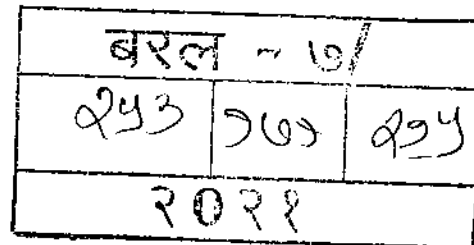 बरल - ७/
२५३ १७१ २१५
२०२१